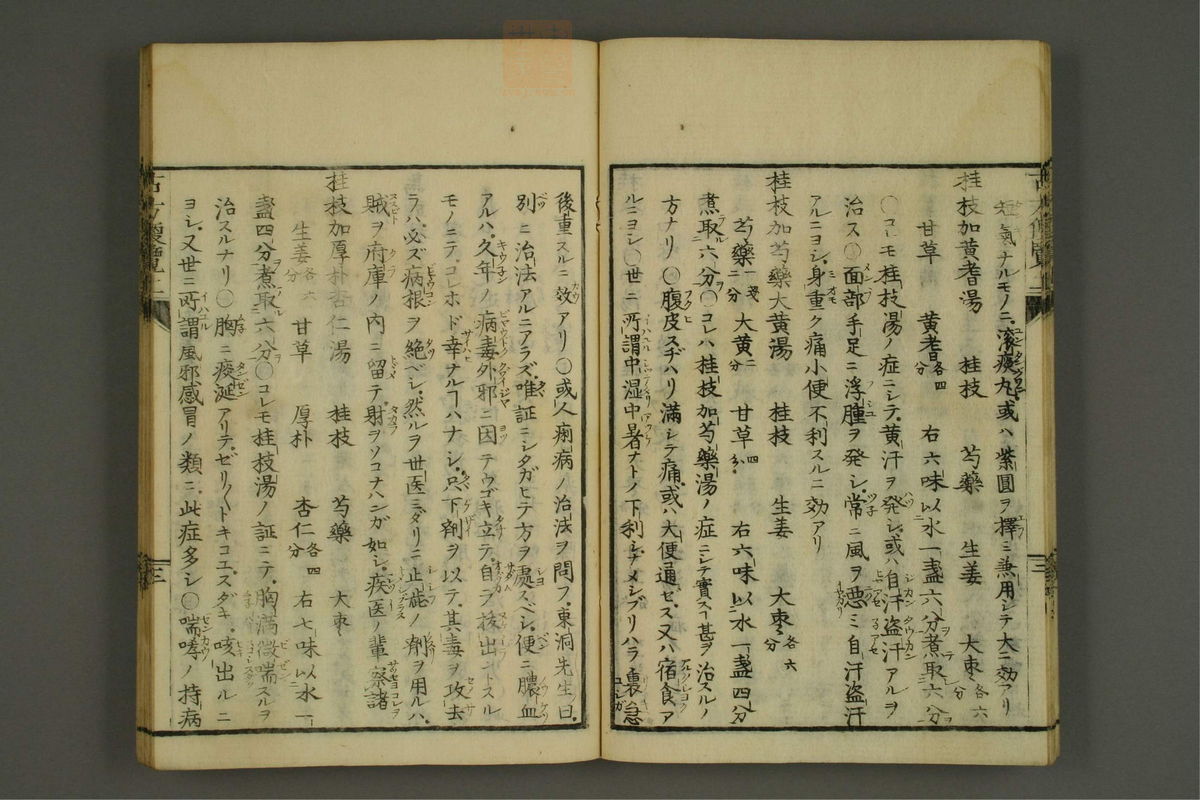 短氣ナルモノニ滚痰丸或ハ紫圓ヲ擇ミ兼用シテ大ニ効アリ
桂枝加黄耆湯 桂枝 芍藥 生姜 大棗各六分
甘草 黄耆各四分 右六味以水一盞六分煮取六分
〇コレモ桂枝湯ノ症ニシテ黄汗ヲ発シ或ハ自汗盗汗アルヲ
治ス〇面部手足ニ浮腫ヲ発シ常ニ風ヲ悪ミ自汗盗汗
アルニヨシ身重ク痛小便不利スルニ効アリ
桂枝加芍藥大黄湯 桂枝 生姜 大棗各六分
芍藥一戔二分 大黄二分 甘草四分 右六味以水一盞四分
煮取六分〇コレハ桂枝加芍藥湯ノ症ニシテ實スルヿ甚ヲ治スルノ
方ナリ〇腹皮スヂハリ満シテ痛或ハ大便通セス又ハ宿食ア
ルニヨシ〇世ニ所謂中湿中暑ナトノ下利シナメシブリハラ裏急
後重スルニ效アリ〇或人痢病ノ治法ヲ問フ東洞先生曰
別ニ治法アルニアラズ唯証ニシタガヒテ方ヲ處スベシ便ニ膿血
アルハ久年ノ病毒外邪ニ因テウゴキ立テ自ラ抜出ントスル
モノニテコレホド幸ナルヿハナシ只下剤ヲ以テ其毒ヲ攻去
ラハ必ズ病根ヲ絶ベシ然ルヲ世医ミダリニ止澁ノ剤ヲ用ルハ
賊ヲ府庫ノ内ニ留テ財ヲソコナハンガ如シ疾医ノ輩察諸
桂枝加厚朴杏仁湯 桂枝 芍藥 大棗
生姜各六分 甘草 厚朴 杏仁各四分 右七味以水一
盞四分煮取六分〇コレモ桂枝湯ノ証ニテ胸満微喘スルヲ
治スルナリ〇胸ニ痰涎アリテゼリ〱トキコエスダキ咳出ルニ
ヨシ又世ニ所謂風邪感冒ノ類ニ此症多シ〇喘哮ノ持病